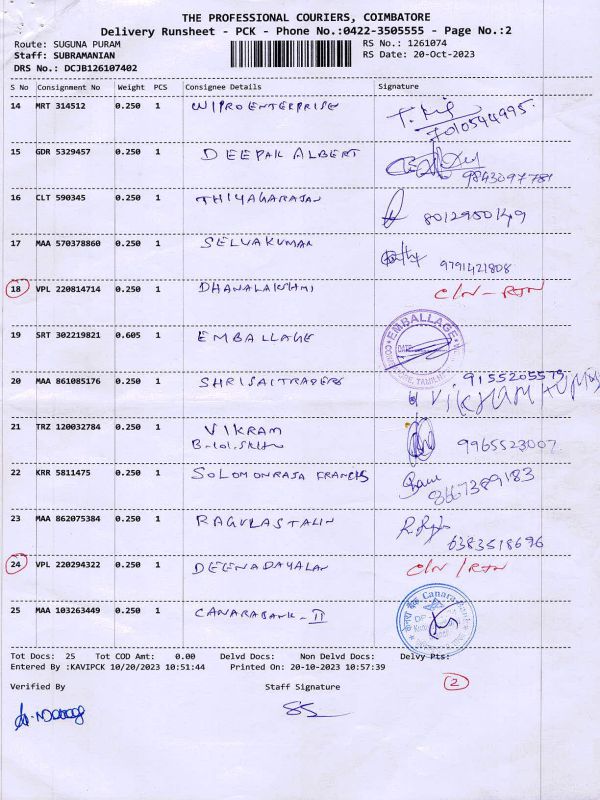 THE PROFESSIONAL COURIERS, COIMBATORE
Delivery Runsheet - PCK - Phone No.:0422-3505555 - Page No.:2
Route: SUGUNA PURAM RS No.: 1261074
Staff: SUBRAMANIAN RS Date: 20-Oct-2023
DRS No.: DCJB126107402
S No Consignment No Weight PCS Consignee Details Signature
14 MRT 314512 0.250 1 WIPRO ENTERPRISE
7010544995.
15 GDR 5329457 0.250 1 DEEPAK ALBERT
9843097789
16 CLT 590345 0.250 1 THIYAGARAJAN
17 MAA 570378860 0.250 1 SELVAKUMAR
9791421808
18 VPL 220814714 0.250 1 DHANALAKSHMI C/N-RTN
19 SRT 302219821 0.605 1 EMBALLAGE EMBALLAGE
DATE
20 MAA 861085176 0.250 1 SHRISAITRADERS 9155205575
21 TRZ 120032784 0.250 1 VIKRAM
9965523007
22 KRR 5811475 0.250 1 SOLOMONRAJA FRANCIS
8667389183
23 MAA 862075384 0.250 1 RAGULASTALIN
6383518696
24 VPL 220294322 0.250 1 DEENADAYALAN C/N/RTN
25 MAA 103263449 0.250 1 CANARABANK-II Canara Bank
Tot Docs: 25 Tot COD Amt: 0.00 Delvd Docs: Non Delvd Docs: Delvy Pts:
Entered By :KAVIPCK 10/20/2023 10:51:44 Printed On: 20-10-2023 10:57:39
2
Verified By Staff Signature